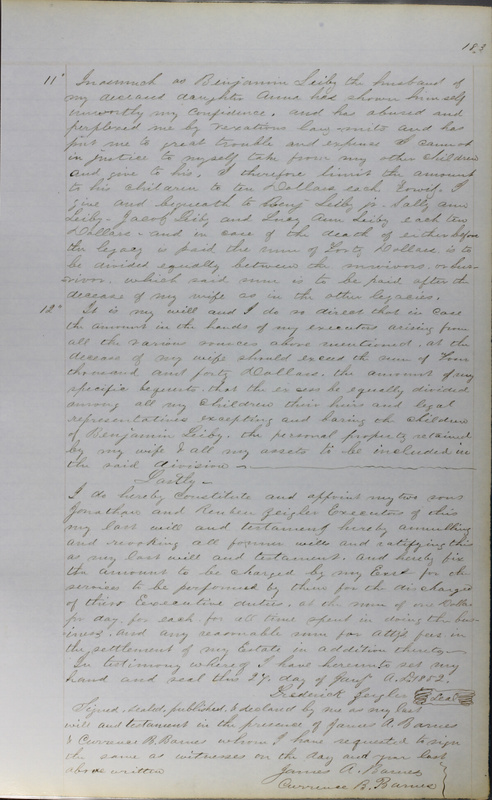 183
11° Inasmuch as Benjamin Leiby the husband of
my deceased daughter Anna has shown himself
unworthy my confidence. and has abused and
perplexed me by vexations law-suits and has
put me to great trouble and expense I cannot
in justice to myself take from my other children
and give to his. I therefore limit the amount
to his children to ten Dollars each Towit. I
give and bequeath to Benj Leiby jr. Sally ann
Leiby. Jacob Leiby and Lucy Ann Leiby each ten
Dollars. and in case of the death of either before
the legacy is paid the sum of Forty Dollars is to
be divided equally between the survivors or sur-
vivor. which said sum is to be paid after the
decease of my wife as in the other legacies.
12° It is my will and I do so direct that in case
the amount in the hands of my executors arising from
all the various sources above mentioned. at the
decease of my wife should exceed the sum of Four
thousand and forty Dollars. the amount of my
specific bequests. that the excess be equally divided
among all my children their heirs and legal
representatives excepting and baring the children
of Benjamin Leiby. the personal property retained
by my wife & all my assets to be included in
the said division
Lastly
I do hereby constitute and appoint my two sons
Jonathan and Reuben Zeigler Executors of this
my last will and testament hereby annulling
and revoking all former wills and ratifying this
as my last will and testament. and hereby fix
the amount to be charged by my Exrs for the
services to be performed by them for the discharge
of their Executive duties. at the sum of one Dollar
per day. for each for all time spent in doing the bus-
iness. and any reasonable sum for attys fees in
the settlement of my Estate in addition thereto
In testimony whereof I have hereunto set my
hand and seal this 27. day of A.D. 1852.
Frederick Zeigler Seal
Signed, sealed, published, & declared by me as my last
will and testament in the presence of James A. Barnes
& Currence B. Barnes whom I have requested to sign
the same as witnesses on the day and year last
above written
James A. Barnes
Currence B. Barnes